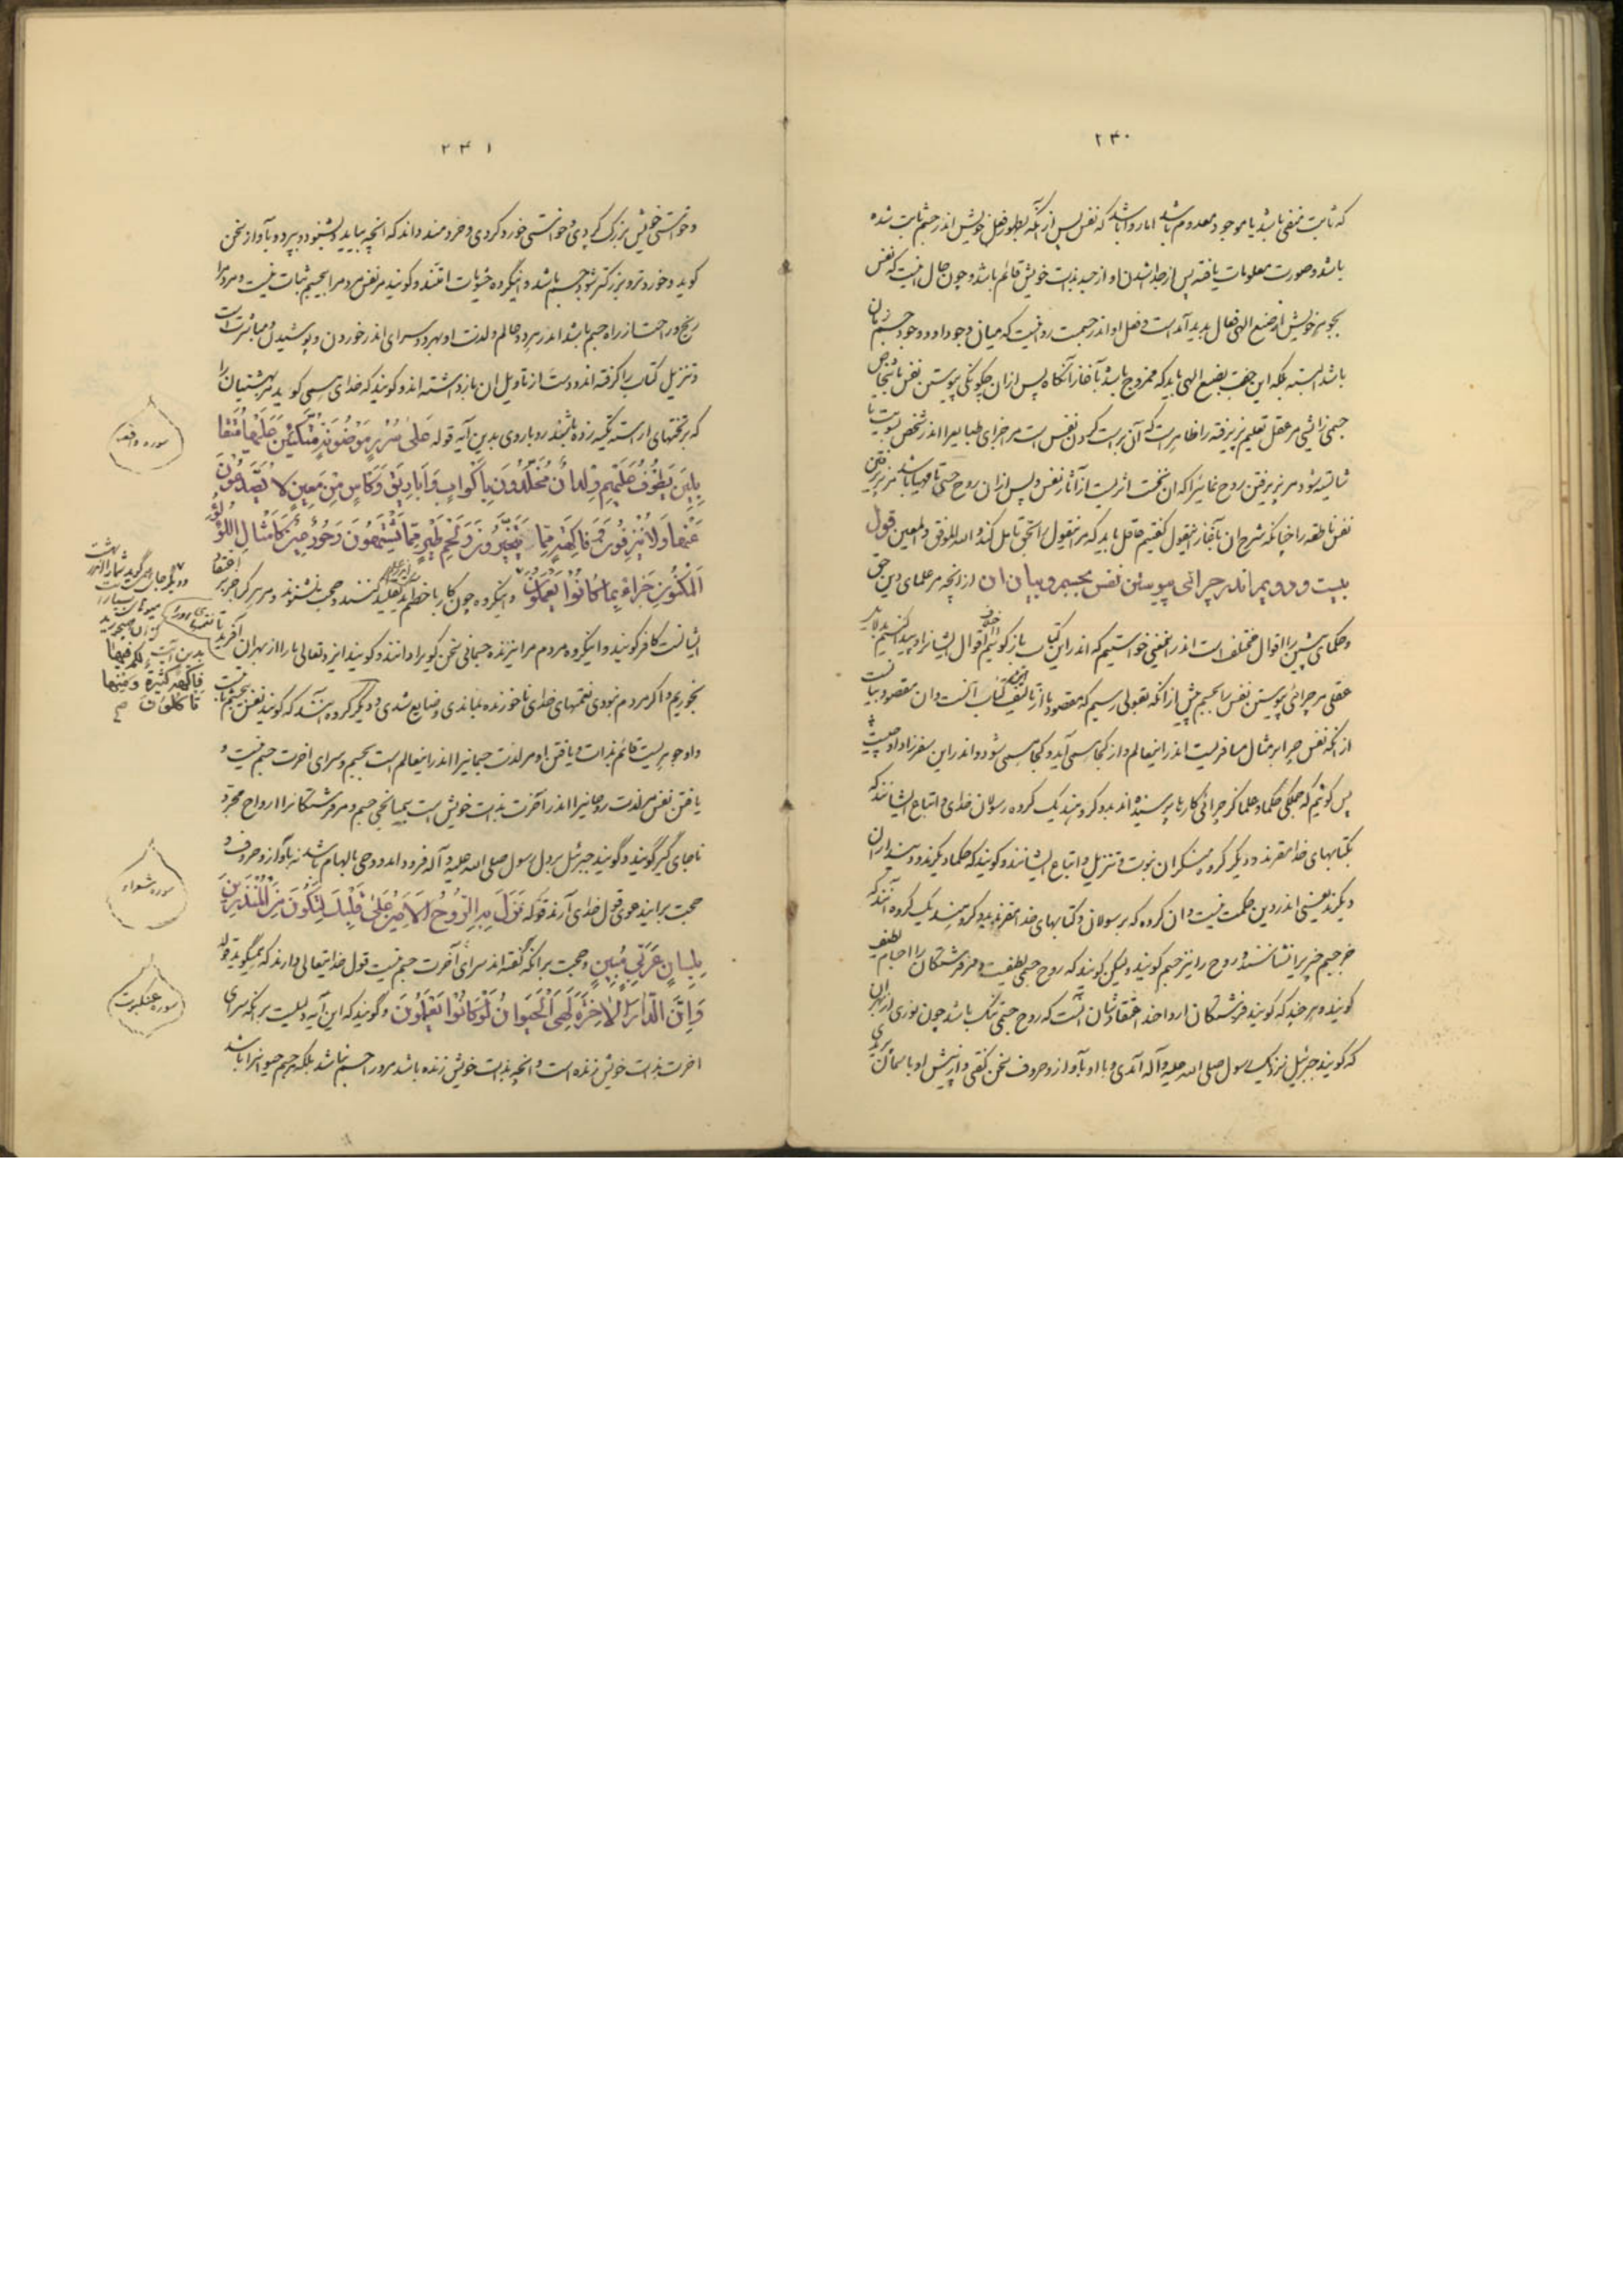 ۲۳۰
که ثابت منفی باشد یا موجود معدوم باشد اما روا باشد که نفس پس از آنکه بظهور فعل خویش اندر جسم ثابت شده
باشد و صورت معلومات یافته پس از جدا شدن او از جسد بذات خویش قائم باشد و چون حال اینست که نفس
بجوهر خویش از صنع الهی فعال پدید آمده است و فعل او اندر جسمست روا نیست که میان وجود او و وجود جسم زمان
باشد البته بلکه این جفت بصنع الهی باید که ممزوج باشد بآغاز آنگاه پس از آن چگونگی پیوستن نفس باشخاص
جسمی زایشی مر عقل تعلیم پذیرفته را ظاهر است که آن براست کردن نفس است مر اجزای طبایع را اندر شخص نوبت تا
شایسته شود مر پذیرفتن روح نمائی را که آن نخست اثریست از آثار نفس و پس از آن روح حسی تا مهیا باشد مر پذیرفتن
نفس ناطقه را چنانکه شرح آن بآغاز این قول گفتیم عاقل باید که مر این قول را بحق تامل کند و الله الموفق و المعین قول
بیست و دویم اندر چرائی پیوستن نفس بجسم و بیان آن از آنچه مر علمای دین حق
و حکمای پیشین را اقوال مختلف است اندر این معنی خواستیم که اندر این کتاب باز گوئیم اقوال ایشانرا و پیدا کنیم بدلایل
عقلی مر چرائی پیوستن نفس را بجسم پیش از آنکه بقولی رسیم که مقصود ما از تالیف این کتاب آنست و آن مقصود بیانست
از آنکه نفس چرا بر مثال مسافریست اندر این عالم و از کجا همی آید و کجا همی شود و اندر این سفر زاد او چیست
پس گوئیم که جملگی حکما و علما کز چرائی کارها پرسیده اند بدو گروهند یک گروه رسولان خدای و اتباع ایشانند که
بکتابهای خدا مقرند و دیگر گروه منکران نبوت و تنزیل و اتباع ایشانند و گویند که حکما دیگرند و دینداران
دیگرند یعنی اندر دین حکمت نیست و آن گروه که بر رسولان و کتابهای خدا مقرند بدو گروهند یک گروه آنند که
جز جسم چیز را نشناسند و روح را نیز جسم گویند و لیکن گویند که روح جسمی لطیفست و مر فرشتگان را اجسام لطیف
گویند و هر چند که گویند فرشتگان ارواحند اعتقادشان آنست که روح جسمی تنک باشد چون نوری از بهر آن
که گویند جبرئیل نزدیک رسول صلی الله علیه و آله آمدی و با او بآواز و حروف سخن گفتی و از پیش او با سمان بر پریدی
۲۳۱
و خواستی خویش بزرگ کردی و خواستی خورد کردی و خردمند داند که آنچه بیاید و بشنود و بپرد و بآواز سخن
گوید و خوردتر و بزرگتر شود جسم باشد و اینگروه حشویات امتند و گویند مر نفس مردم را بی جسم ثبات نیست و مر او را
رنج و راحت از راه جسم باشد اندر هر دو عالم و لذت او بهر دو سرای اندر خوردن و پوشیدن و مباشرت است
و تنزیل کتاب را گرفته اند و دست از تاویل آن باز داشته اند و گویند که خدای همی گوید مر بهشتیان را
که بر تختهای آراسته تکیه زده باشند رو باروی بدین آیه قوله عَلىٰ سُرُرٍ مَوْضُونَةٍ مُتَّكِئِينَ عَلَيْها مُتَقا
بِلِينَ يَطُوفُ عَلَيْهِمْ وِلْدانٌ مُخَلَّدُونَ بِأَكْوابٍ وَ أَبارِيقَ وَ كَأْسٍ مِنْ مَعِينٍ لا يُصَدَّعُونَ
عَنْها وَ لا يُنْزِفُونَ وَ فاكِهَةٍ مِمَّا يَتَخَيَّرُونَ وَ لَحْمِ طَيْرٍ مِمَّا يَشْتَهُونَ وَ حُورٌ عِينٌ كَأَمْثالِ اللُّؤْلُؤِ
الْمَكْنُونِ جَزاءً بِما كانُوا يَعْمَلُونَ و اینگروه چون کار با خطر بتقلید کنند و حجت نشنوند و مر هر که را جز بر اعتقاد
ایشانست کافر گویند و اینگروه مردم مرایزد را جسمانی سخن گوی دانند و گویند ایزد تعالی ما را از بهر آن آفرید تا نعمتهای او را
بخوریم و اگر مردم نبودی نعمتهای خدای ناخورنده بماندی و ضایع شدی و دیگر گروه آنند که گویند نفس بیجسم ثابت است
و او جوهریست قائم بذات و یافتن او مر لذت جسمانیرا اندر این عالم است بجسم و سرای آخرت جسم نیست و
یافتن نفس مر لذت روحانیرا اندر آخرت بذات خویش است بیمیانجی جسم و مر فرشتگانرا ارواح مجرد
ناجای گیر گویند و گویند جبرئیل بر دل رسول صلی الله علیه و آله فرود آمد و وحی بالهام باشد نه بآواز و حروف و
حجت بر ایندعوی قول خدای آرند قوله نَزَلَ بِهِ الرُّوحُ الْأَمِينُ عَلىٰ قَلْبِكَ لِتَكُونَ مِنَ الْمُنْذِرِينَ
بِلِسانٍ عَرَبِيٍّ مُبِينٍ و حجت بر آنکه گفته اند سرای آخرت جسم نیست قول خدایتعالی دارند که همیگوید قوله
وَ إِنَّ الدَّارَ الْآخِرَةَ لَهِيَ الْحَيَوانُ لَوْ كانُوا يَعْلَمُونَ و گویند که این آیه دلیلست بر آنکه سرای
آخرت بذات خویش زنده است و آنچه بذات خویش زنده باشد مر او را جسم نباشد بلکه جسم حیوانرا باشد
سوره واقعه
و دیگر جای همی گوید شما را اندر بهشت
میوهای بسیار است
کز آن همیخورید
بدین آیت لَكُمْ فِيها
فاكِهَةٌ كَثِيرَةٌ وَ مِنْها
تَأْكُلُونَ صح
سوره شعراء
سوره عنکبوت